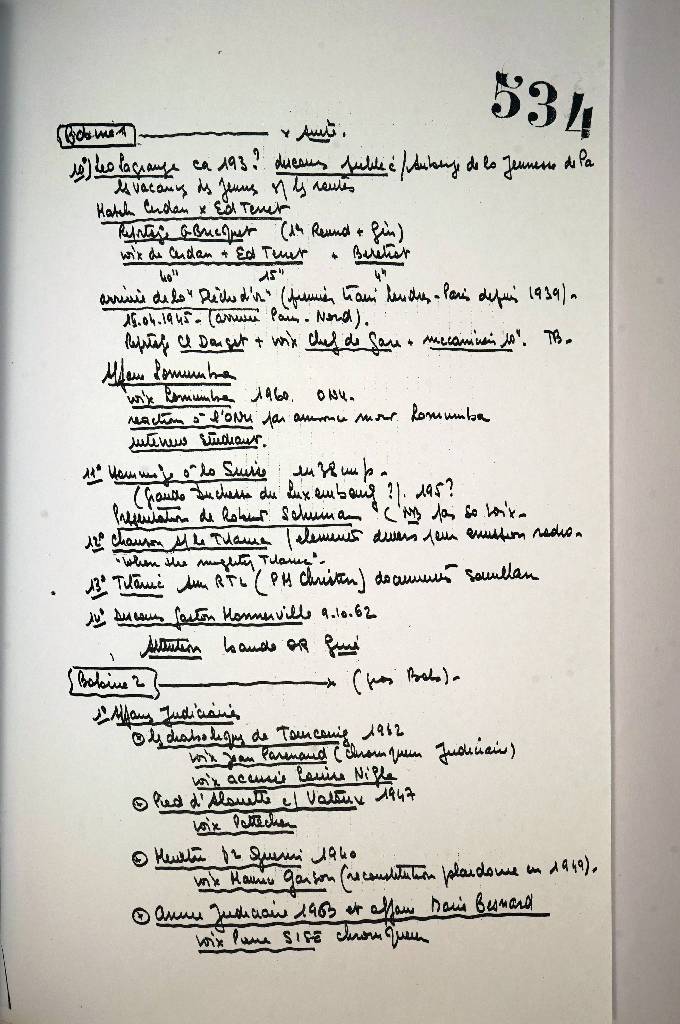 534
Bobine 1 x suite.
10°) Leo Lagrange ca 193? discours public / Auberge de la Jeunesse de Pa
les vacances des jeunes les routes
Match Cerdan x Ed Tenet
Reptge G. Bucquet (1er Round + fin)
voix de Cerdan + Ed Tenet + Beretrot
40" 15" 4"
arrivée de la "Flèche d'or" (premier train Londres-Paris depuis 1939).
15.04.1945 - (arrivée Paris-Nord).
Reptge Cl Darget + voix Chef de Gare + mecanicien 10". TB.
Affaire Lomumba
voix Lomumba 1960. ONU.
reaction à l'ONU par annonce mort Lomumba
interview Etudiant.
11° Hommage à la Suisse en 38 cm/s.
(Grande Duchesse du Luxembourg ?). 195?
Présentation de Robert Schuman (NB pas sa voix.
12° Chanson s/ le Titanic / elements divers pour emission radio.
"When the mighty Titanic".
13° Titanic sur RTL (PH Christin) documents
14° Discours Gaston Monnerville 9.10.62
Attention bande OR
Bobine 2 x (gros Bob).
1° Affaires Judiciaires
les diaboliques de Tourcoing 1962
voix Jean (chroniqueur Judiciaire)
voix accusée Louise
Pied d'Alouette c/ Vatoux 1947
voix Pottecher
1940
voix Maurice Garçon (reconstitution plaidoirie en 1949).
Annee Judiciaire 1963 et affaire Marie Besnard
voix Pierre SISE chroniqueur